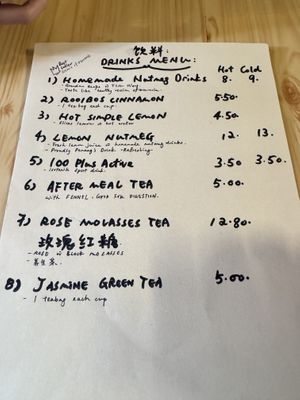 饮料:
DRINKS MENU:
Hot Cold
1) Homemade Nutmeg Drinks 8. 9.
2) ROOIBOS CINNAMON 5.50
- 1 teabag each cup
3) HOT SIMPLE LEMON 4.50
- Slice lemon & hot water
4) LEMON NUTMEG 12. 13.
- Fresh lemon juice & homemade nutmeg drinks
- Proudly Penang's Drink - Refreshing
5) 100 Plus Active 3.50 3.50
- Isotonic sport drink
6) AFTER MEAL TEA 5.00
with FENNEL. Good for DIGESTION.
7) ROSE MOLASSES TEA 12.80
玫瑰红糖
- ROSE & BLACK MOLASSES
- 养生茶
8) JASMINE GREEN TEA 5.00
- 1 teabag each cup